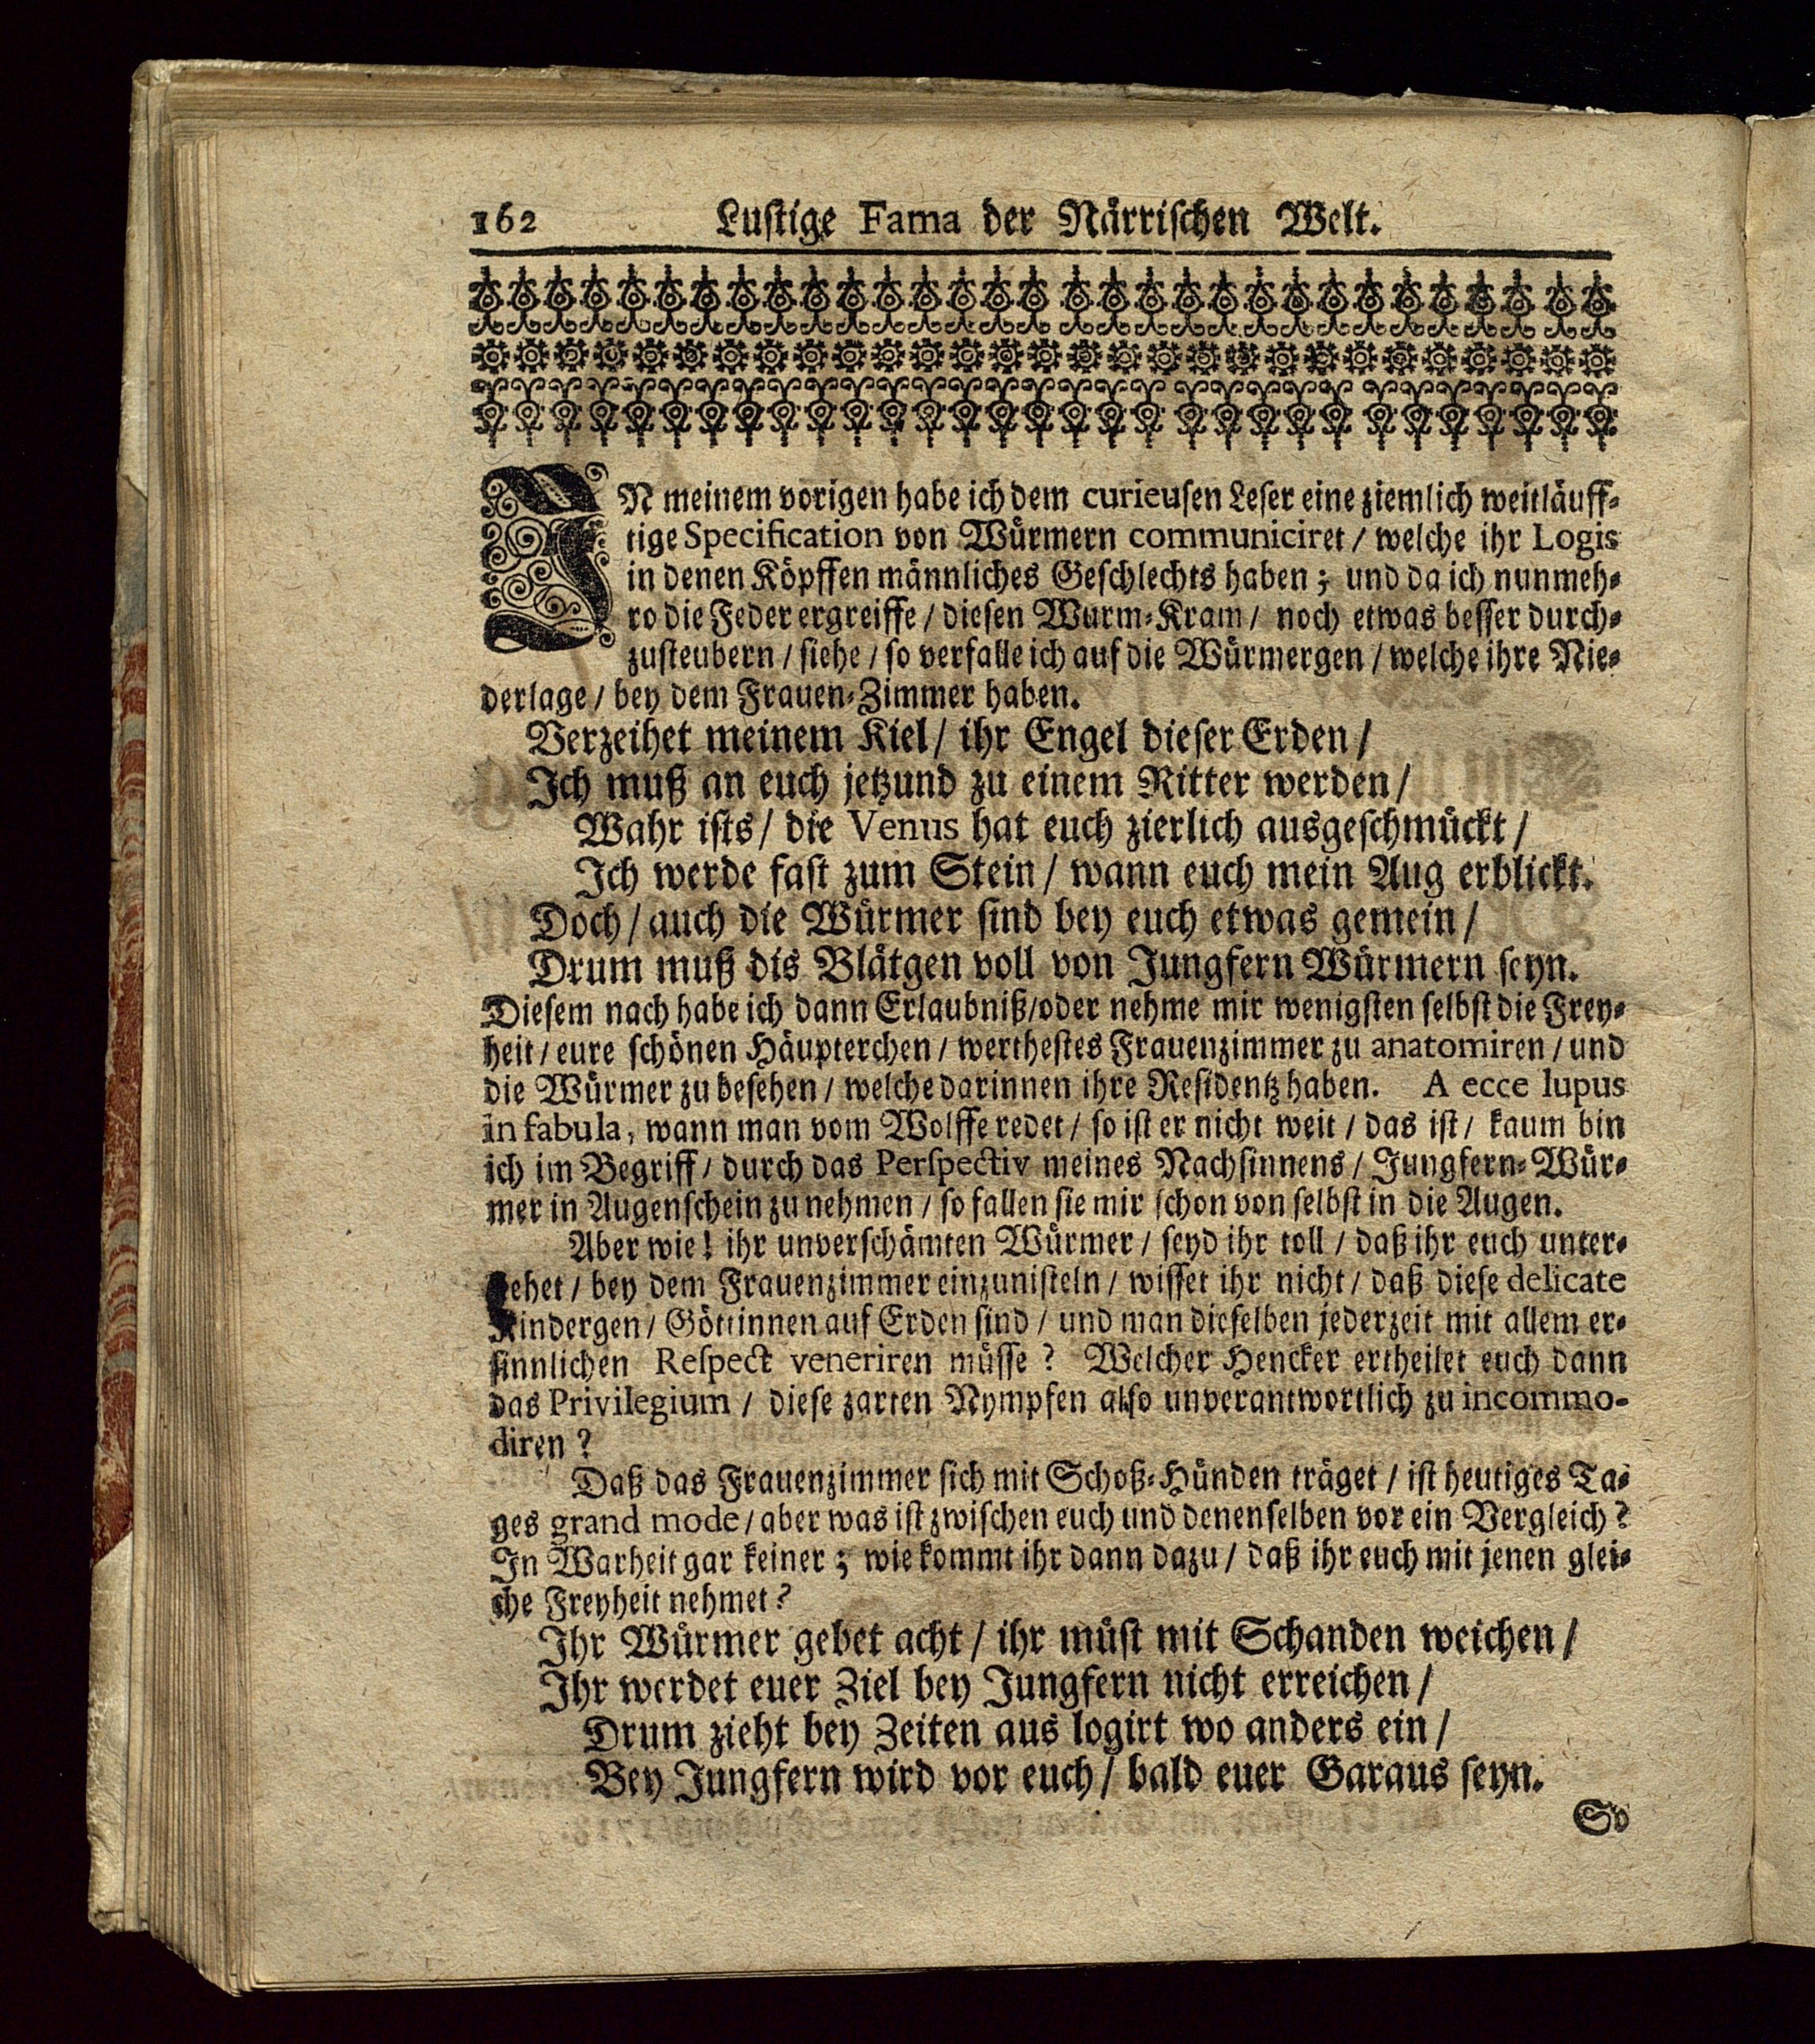 162 Lustige Fama der Närrischen Welt.
IN meinem vorigen habe ich dem curieusen Leser eine ziemlich weitläuff-
tige Specification von Würmern communiciret / welche ihr Logis
in denen Köpffen männliches Geschlechts haben; und da ich nunmeh-
ro die Feder ergreiffe / diesen Wurm-Kram / noch etwas besser durch-
zusteubern / siehe / so verfalle ich auf die Würmergen / welche ihre Nie-
derlage / bey dem Frauen-Zimmer haben.
Verzeihet meinem Kiel / ihr Engel dieser Erden /
Ich muß an euch jetzund zu einem Ritter werden /
Wahr ists / die Venus hat euch zierlich ausgeschmückt /
Ich werde fast zum Stein / wann euch mein Aug erblickt.
Doch / auch die Würmer sind bey euch etwas gemein /
Drum muß dis Blätgen voll von Jungfern Würmern seyn.
Diesem nach habe ich dann Erlaubniß/oder nehme mir wenigsten selbst die Frey-
heit / eure schönen Häupterchen / werthestes Frauenzimmer zu anatomiren / und
die Würmer zu besehen / welche darinnen ihre Residentz haben. A ecce lupus
in fabula, wann man vom Wolffe redet / so ist er nicht weit / das ist / kaum bin
ich im Begriff / durch das Perspectiv meines Nachsinnens / Jungfern-Wür-
mer in Augenschein zu nehmen / so fallen sie mir schon von selbst in die Augen.
Aber wie! ihr unverschämten Würmer / seyd ihr toll / daß ihr euch unter-
gehet / bey dem Frauenzimmer einzunisteln / wisset ihr nicht / daß diese delicate
Kindergen / Göttinnen auf Erden sind / und man dieselben jederzeit mit allem er-
sinnlichen Respect veneriren müsse? Welcher Hencker ertheilet euch dann
das Privilegium / diese zarten Nympfen also unverantwortlich zu incommo-
diren?
Daß das Frauenzimmer sich mit Schoß-Hünden träget / ist heutiges Ta-
ges grand mode / aber was ist zwischen euch und denenselben vor ein Vergleich?
In Warheit gar keiner; wie kommt ihr dann dazu / daß ihr euch mit jenen glei-
che Freyheit nehmet?
Ihr Würmer gebet acht / ihr müst mit Schanden weichen /
Ihr werdet euer Ziel bey Jungfern nicht erreichen /
Drum zieht bey Zeiten aus logirt wo anders ein /
Bey Jungfern wird vor euch / bald euer Garaus seyn.
So